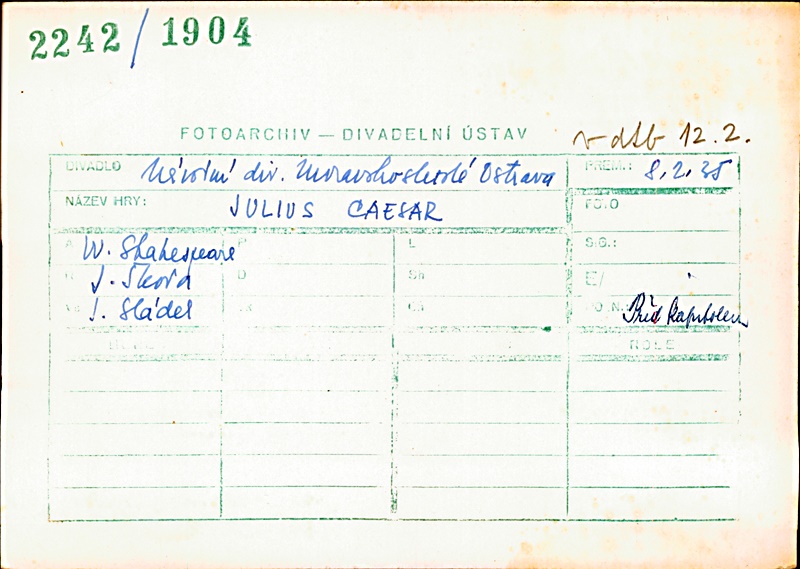 2242/1904
FOTOARCHIV — DIVADELNÍ ÚSTAV
v dtb 12.2.
DIVADLO Národní div. Moravskoslezské Ostrava
PREM.: 8.2.35
NÁZEV HRY: JULIUS CAESAR
FOTO
A W. Shakespeare P L S.G.:
J. Škoda D Sh E/
J. Sládek K Ch PO.N.: Před Kapitolem
MENO ROLE